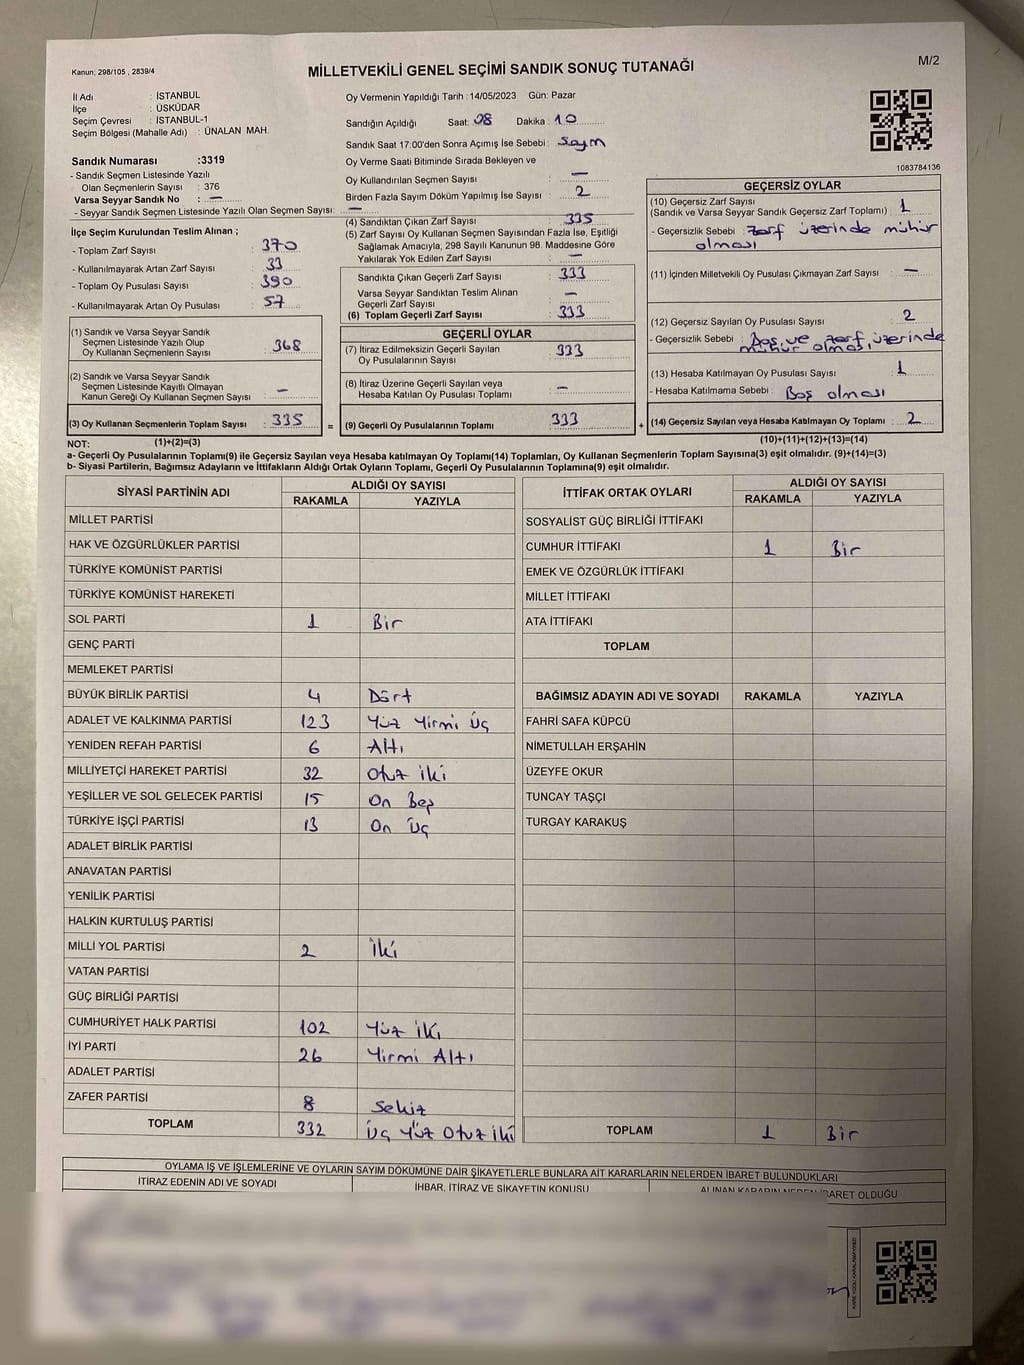 Kanun; 298/105 , 2839/4
MİLLETVEKİLİ GENEL SEÇİMİ SANDIK SONUÇ TUTANAĞI
M/2
İl Adı : İSTANBUL
İlçe : ÜSKÜDAR
Seçim Çevresi : İSTANBUL-1
Seçim Bölgesi (Mahalle Adı) : ÜNALAN MAH.
Sandık Numarası :3319
- Sandık Seçmen Listesinde Yazılı
Olan Seçmenlerin Sayısı : 376
Varsa Seyyar Sandık No : —
- Seyyar Sandık Seçmen Listesinde Yazılı Olan Seçmen Sayısı: —
Oy Vermenin Yapıldığı Tarih : 14/05/2023 Gün: Pazar
Sandığın Açıldığı Saat: 08 Dakika : 10
Sandık Saat 17.00'den Sonra Açımış İse Sebebi : Sayım
Oy Verme Saati Bitiminde Sırada Bekleyen ve
Oy Kullandırılan Seçmen Sayısı : —
Birden Fazla Sayım Döküm Yapılmış İse Sayısı : 2
1083784136
İlçe Seçim Kurulundan Teslim Alınan ;
- Toplam Zarf Sayısı : 370
- Kullanılmayarak Artan Zarf Sayısı : 33
- Toplam Oy Pusulası Sayısı : 390
- Kullanılmayarak Artan Oy Pusulası : 57
(1) Sandık ve Varsa Seyyar Sandık
Seçmen Listesinde Yazılı Olup
Oy Kullanan Seçmenlerin Sayısı : 368
(2) Sandık ve Varsa Seyyar Sandık
Seçmen Listesinde Kayıtlı Olmayan
Kanun Gereği Oy Kullanan Seçmen Sayısı : —
(3) Oy Kullanan Seçmenlerin Toplam Sayısı : 335
(4) Sandıktan Çıkan Zarf Sayısı : 335
(5) Zarf Sayısı Oy Kullanan Seçmen Sayısından Fazla İse, Eşitliği
Sağlamak Amacıyla; 298 Sayılı Kanunun 98. Maddesine Göre
Yakılarak Yok Edilen Zarf Sayısı : —
Sandıkta Çıkan Geçerli Zarf Sayısı : 333
Varsa Seyyar Sandıktan Teslim Alınan
Geçerli Zarf Sayısı : —
(6) Toplam Geçerli Zarf Sayısı : 333
GEÇERLİ OYLAR
(7) İtiraz Edilmeksizin Geçerli Sayılan
Oy Pusulalarının Sayısı : 333
(8) İtiraz Üzerine Geçerli Sayılan veya
Hesaba Katılan Oy Pusulası Toplamı : —
= (9) Geçerli Oy Pusulalarının Toplamı : 333
GEÇERSİZ OYLAR
(10) Geçersiz Zarf Sayısı
(Sandık ve Varsa Seyyar Sandık Geçersiz Zarf Toplamı) : 1
- Geçersizlik Sebebi : Zarf üzerinde mühür
olması
(11) İçinden Milletvekili Oy Pusulası Çıkmayan Zarf Sayısı : —
(12) Geçersiz Sayılan Oy Pusulası Sayısı : 2
- Geçersizlik Sebebi : Boş ve zarf üzerinde
mühür olması
(13) Hesaba Katılmayan Oy Pusulası Sayısı : 1
- Hesaba Katılmama Sebebi : Boş olması
+ (14) Geçersiz Sayılan veya Hesaba Katılmayan Oy Toplamı : 2
NOT: (1)+(2)=(3)
(10)+(11)+(12)+(13)=(14)
a- Geçerli Oy Pusulalarının Toplamı(9) ile Geçersiz Sayılan veya Hesaba katılmayan Oy Toplamı(14) Toplamları, Oy Kullanan Seçmenlerin Toplam Sayısına(3) eşit olmalıdır. (9)+(14)=(3)
b- Siyasi Partilerin, Bağımsız Adayların ve İttifakların Aldığı Ortak Oyların Toplamı, Geçerli Oy Pusulalarının Toplamına(9) eşit olmalıdır.
SİYASİ PARTİNİN ADI ALDIĞI OY SAYISI
RAKAMLA YAZIYLA
MİLLET PARTİSİ
HAK VE ÖZGÜRLÜKLER PARTİSİ
TÜRKİYE KOMÜNİST PARTİSİ
TÜRKİYE KOMÜNİST HAREKETİ
SOL PARTİ 1 Bir
GENÇ PARTİ
MEMLEKET PARTİSİ
BÜYÜK BİRLİK PARTİSİ 4 Dört
ADALET VE KALKINMA PARTİSİ 123 Yüz Yirmi Üç
YENİDEN REFAH PARTİSİ 6 Altı
MİLLİYETÇİ HAREKET PARTİSİ 32 Otuz iki
YEŞİLLER VE SOL GELECEK PARTİSİ 15 On Beş
TÜRKİYE İŞÇİ PARTİSİ 13 On Üç
ADALET BİRLİK PARTİSİ
ANAVATAN PARTİSİ
YENİLİK PARTİSİ
HALKIN KURTULUŞ PARTİSİ
MİLLİ YOL PARTİSİ 2 İki
VATAN PARTİSİ
GÜÇ BİRLİĞİ PARTİSİ
CUMHURİYET HALK PARTİSİ 102 Yüz iki
İYİ PARTİ 26 Yirmi Altı
ADALET PARTİSİ
ZAFER PARTİSİ 8 Sekiz
TOPLAM 332 Üç Yüz Otuz iki
İTTİFAK ORTAK OYLARI ALDIĞI OY SAYISI
RAKAMLA YAZIYLA
SOSYALİST GÜÇ BİRLİĞİ İTTİFAKI
CUMHUR İTTİFAKI 1 Bir
EMEK VE ÖZGÜRLÜK İTTİFAKI
MİLLET İTTİFAKI
ATA İTTİFAKI
TOPLAM
BAĞIMSIZ ADAYIN ADI VE SOYADI RAKAMLA YAZIYLA
FAHRİ SAFA KÜPCÜ
NİMETULLAH ERŞAHİN
ÜZEYFE OKUR
TUNCAY TAŞÇI
TURGAY KARAKUŞ
TOPLAM 1 Bir
OYLAMA İŞ VE İŞLEMLERİNE VE OYLARIN SAYIM DÖKÜMÜNE DAİR ŞİKAYETLERLE BUNLARA AİT KARARLARIN NELERDEN İBARET BULUNDUKLARI
İTİRAZ EDENİN ADI VE SOYADI İHBAR, İTİRAZ VE ŞİKAYETİN KONUSU ALINAN KARARIN NEDEN İBARET OLDUĞU